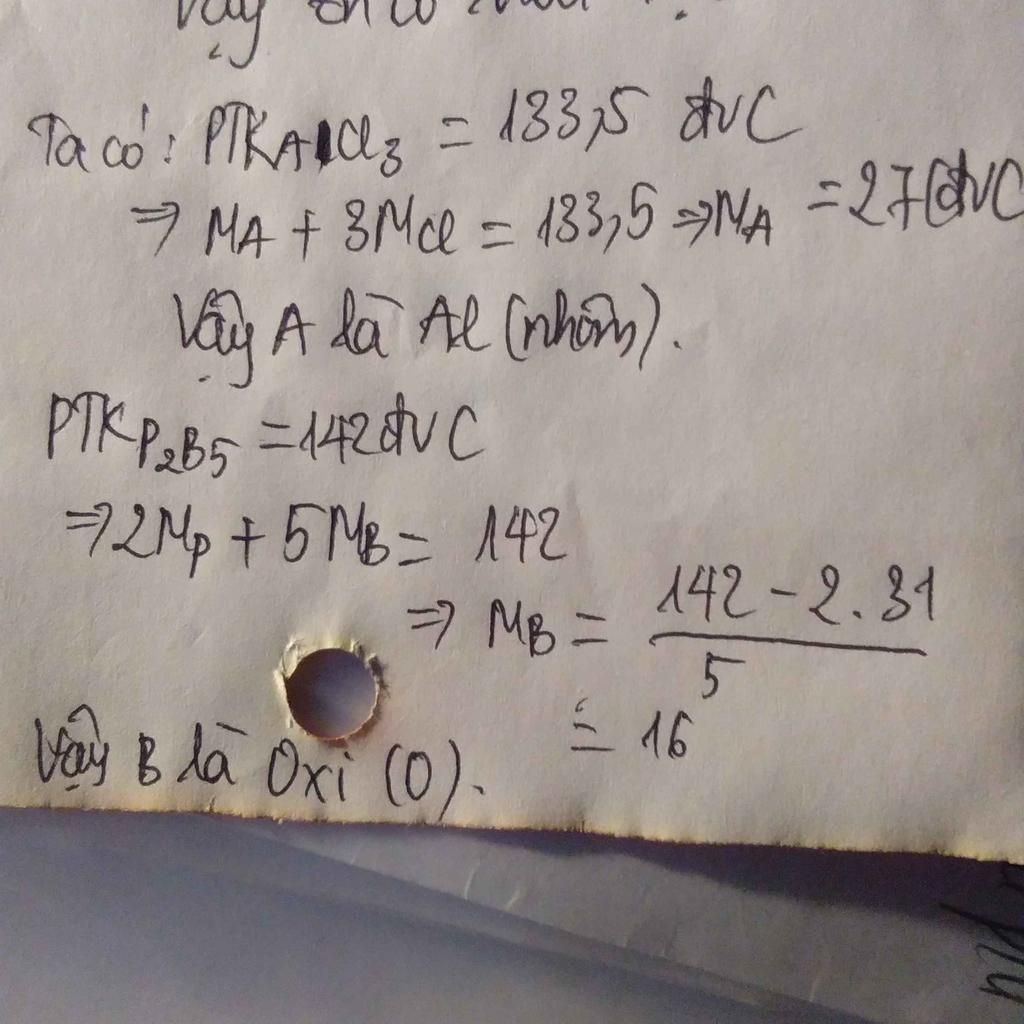 Vậy
Ta có: PTK ACl3 = 133,5 đvC
⇒ MA + 3MCl = 133,5 ⇒ MA = 27 (đvC
Vậy A là Al (nhôm).
PTK P2B5 = 142 đvC
⇒ 2MP + 5MB = 142
⇒ MB = (142 - 2.31)/5
= 16
Vậy B là Oxi (O).